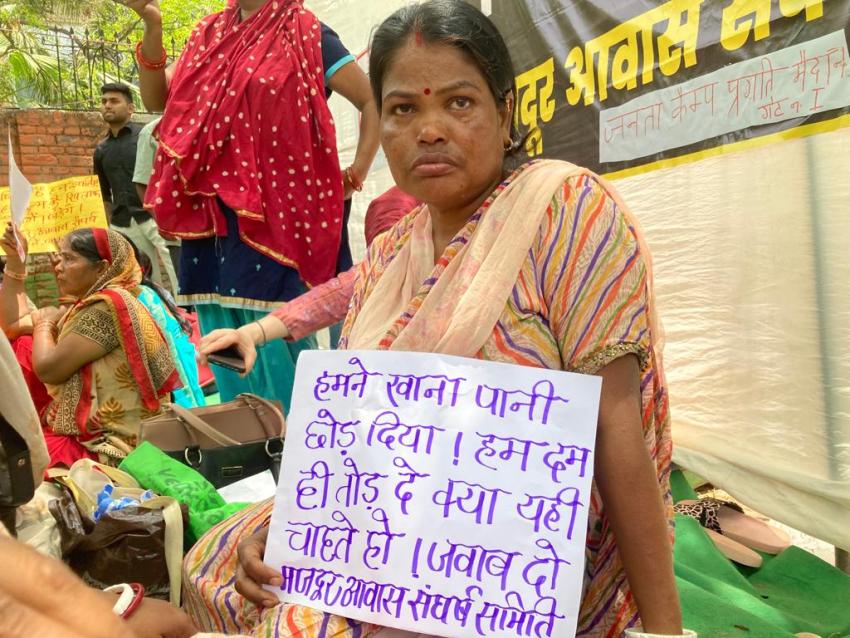 दूर आवास संघ
जनता कैम्प प्रगति मैदान
गेट न I
हमने खाना पानी
छोड़ दिया ! हम दम
ही तोड़ दे क्या यही
चाहते हो ! जवाब दो
मजदूर आवास संघर्ष समिति
संघर्ष